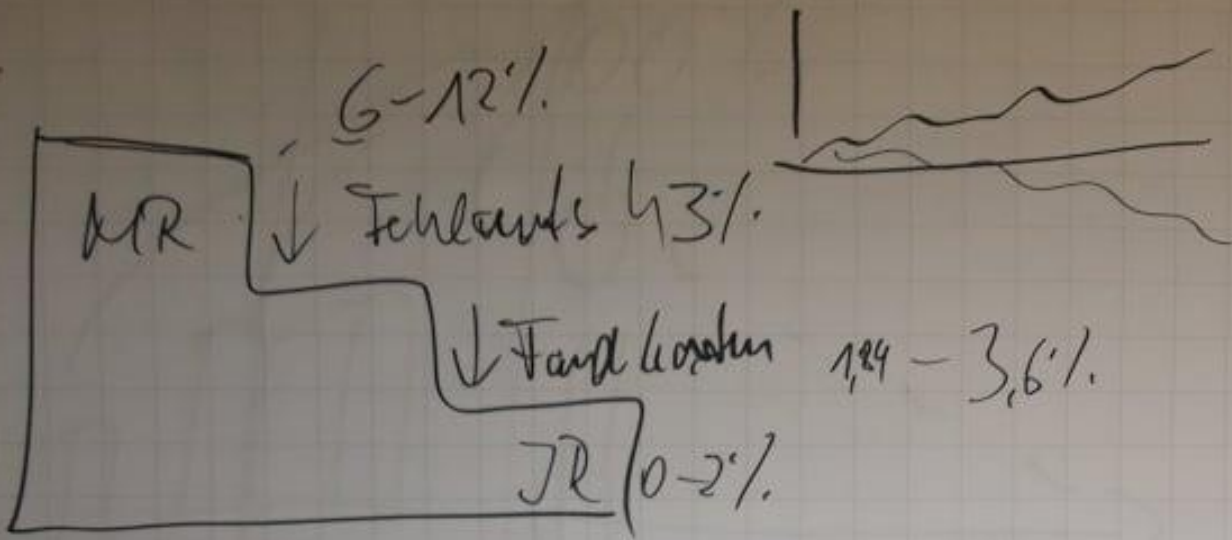 6-12%
MR ↓ Fehlerunts 43%
↓ Fondkosten 1,84 - 3,6%
JR 0-2%